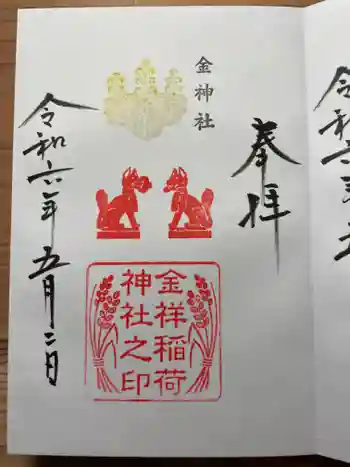 奉拝
金神社
金祥稲荷
神社之印
令和六年五月二日